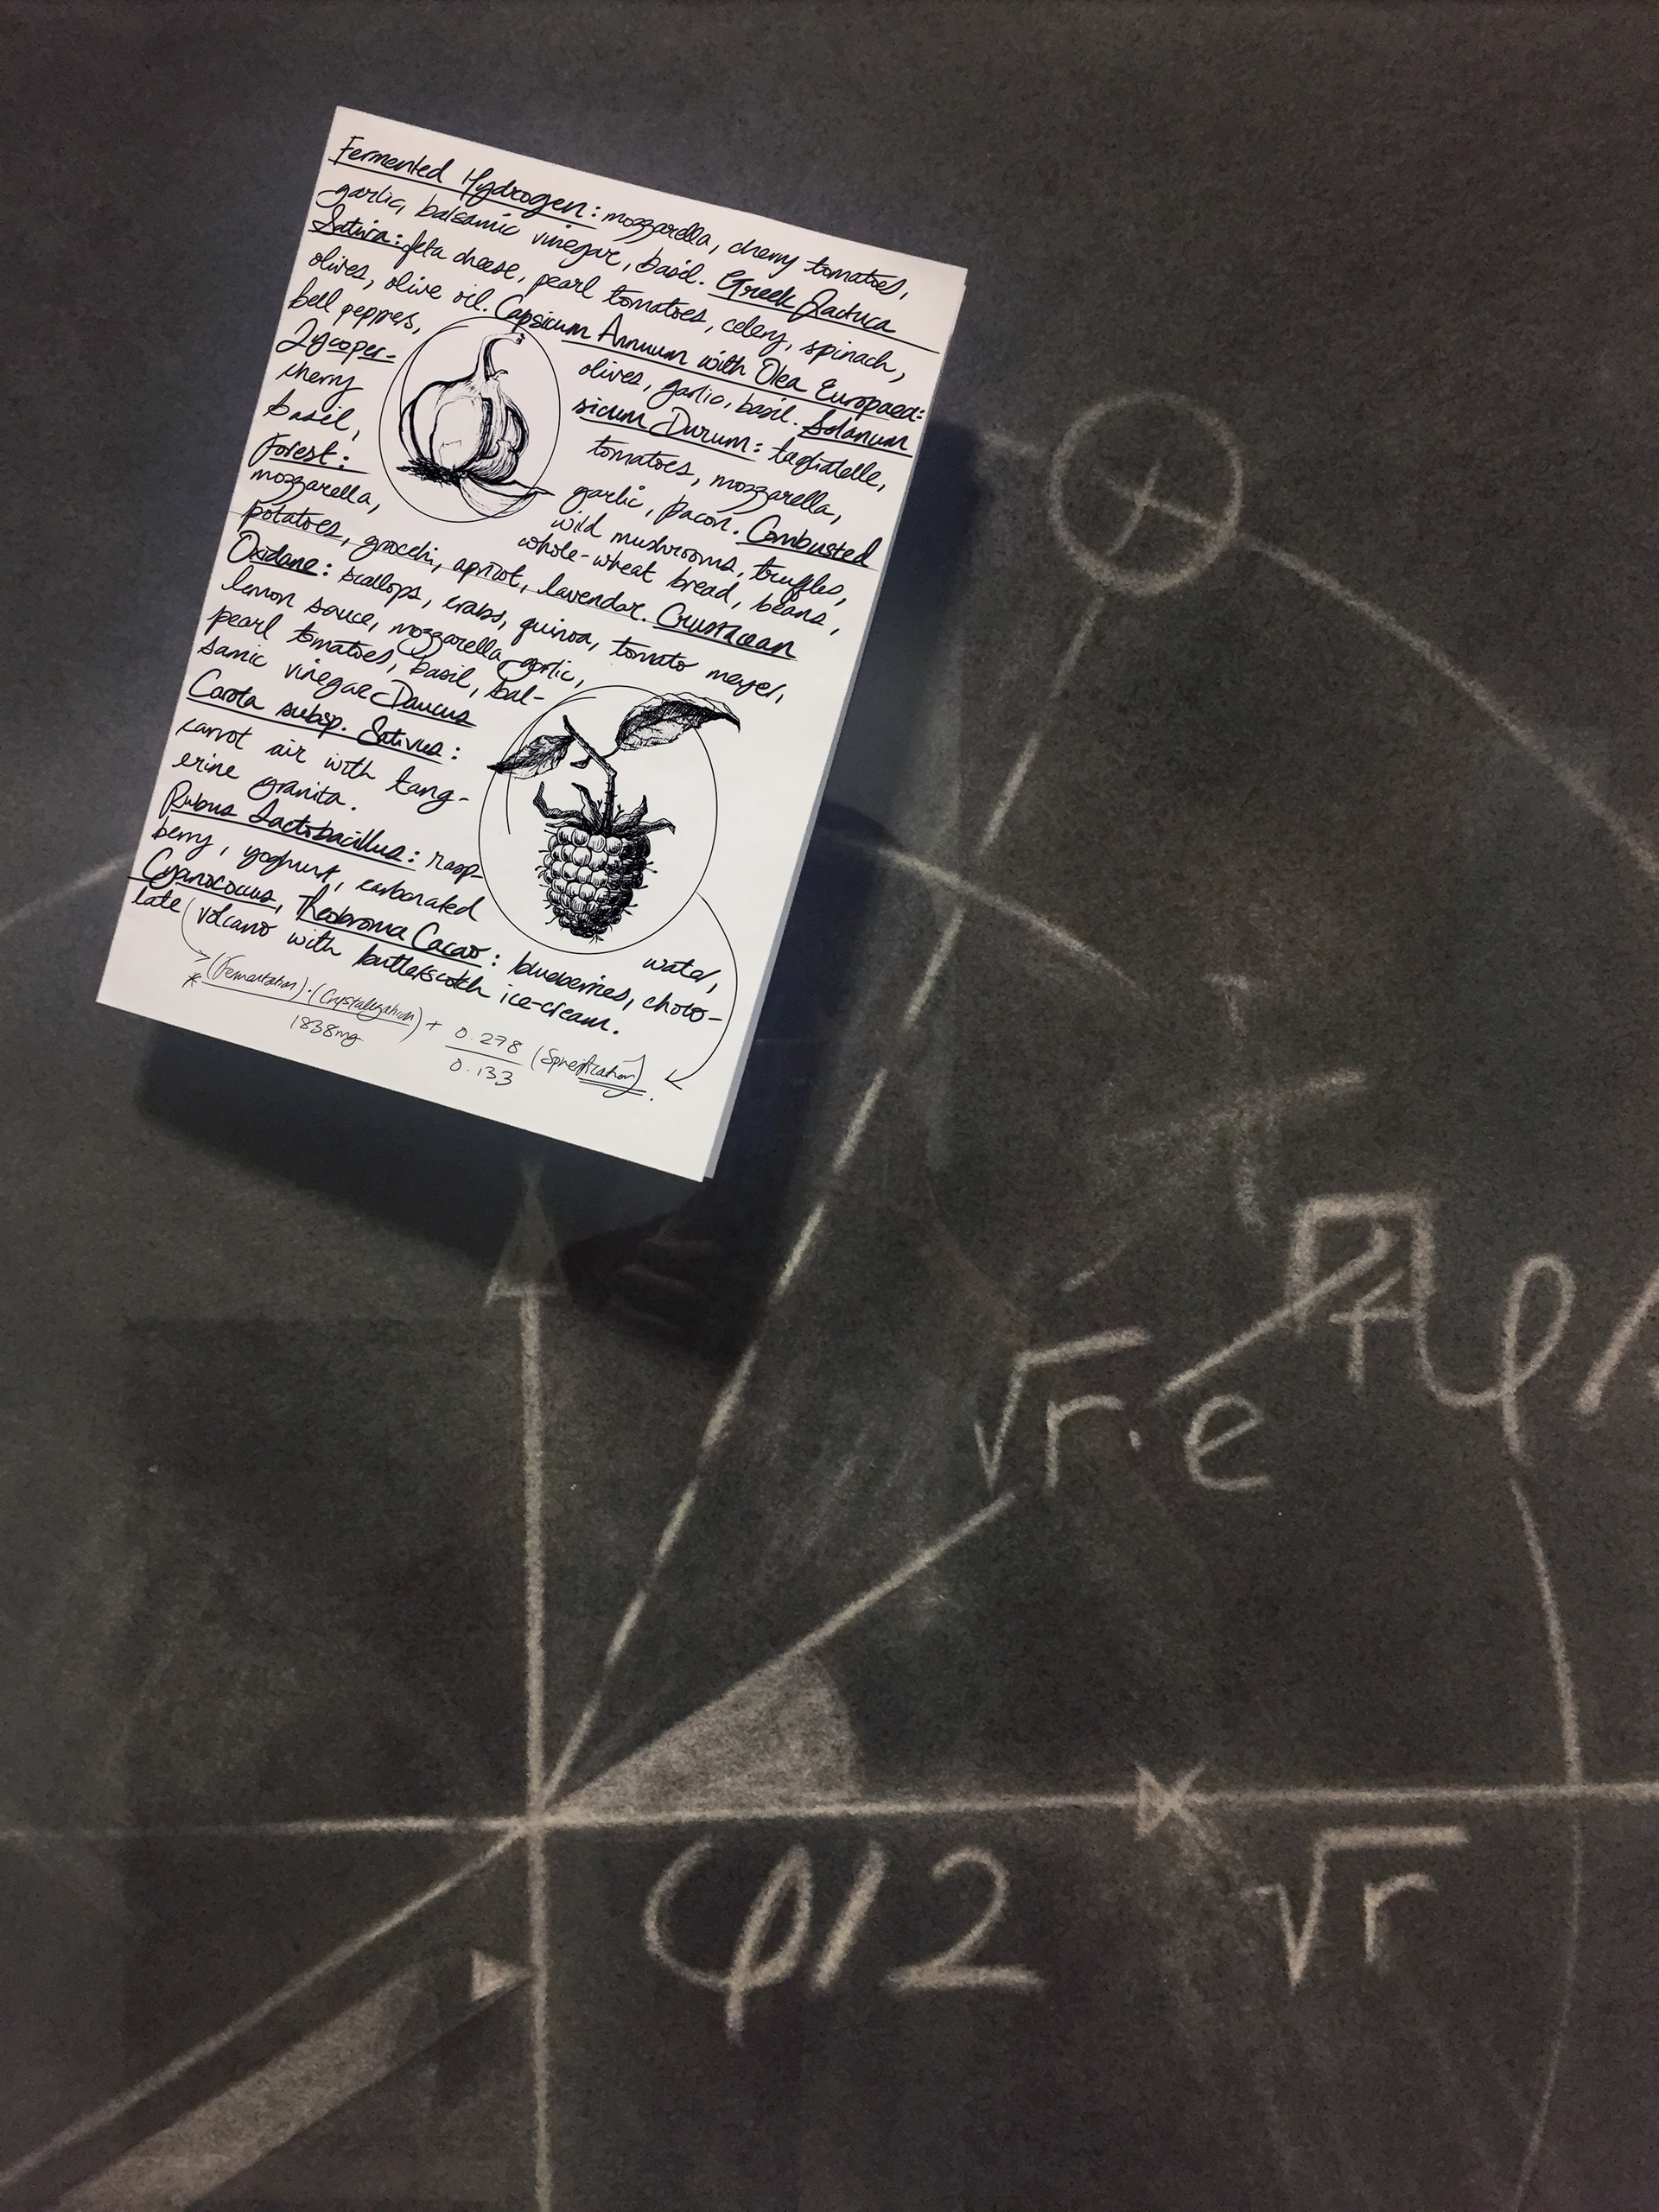 Fermented Hydrogen: mozzarella, cherry tomatoes,
garlic, balsamic vinegar, basil. Greek Lactuca
Sativa: feta cheese, pearl tomatoes, celery, spinach,
olives, olive oil. Capsicum Annuum with Olea Europaea:
bell peppers, olives, garlic, basil. Solanum
Lycoper- sicum Durum: tagliatelle,
cherry tomatoes, mozzarella,
basil, garlic, bacon. Combusted
Forest: wild mushrooms, truffles,
mozzarella, whole-wheat bread, beans,
potatoes, apricot, lavendar. Crustacean
Oxidane: scallops, crabs, quinoa, tomato meyer,
lemon sauce, mozzarella, garlic,
pearl tomatoes, basil, bal-
samic vinegar Daucus
Carota subsp. Sativus:
carrot air with tang-
erine granita.
Rubus Lactobacillus: rasp-
berry, yoghurt, carbonated water,
Cyanococcus, Theobroma Cacao: blueberries, choco-
late volcano with butterscotch ice-cream.
*(Fermentation)·(Crystalization) + 0.278 (Spherification).
1838mg 0.133
√r·e φ/
φ/2 √r